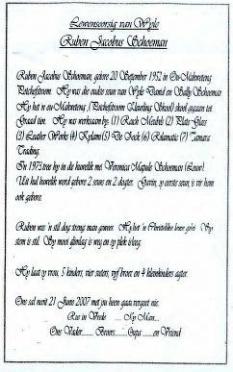 Lewensoorsig van Wyle
Ruben Jacobus Schoeman
Ruben Jacobus Schoeman, gebore 20 September 1952 in Ou-Makweteng
Potchefstroom. Hy was die oudste seun van Wyle Daniel en Sally Schoeman
Hy het in ou-Makweteng (Potchefstroom Kleurling Skool) skool gegaan tot
Graad tien. Hy was werksaam by: (1) Reach Meubels (2) Plate Glass
(3) Leather Works (4) Kylami (5) De Jock (6) Rolamatic (7) Tamara
Trading.
In 1975 tree hy in die huwelik met Veronica Mapule Schoeman
Uit hul huwelik word gebore 2 seuns en 2 dogters. Gavin, sy eerste seun, is vir hom
ook gebore.
Ruben was 'n stil dog streng man gewees. Hy het 'n Christelike lewe gelei. Sy
stem is stil. Sy mooi dag is weg en sy plek is leeg.
Hy laat sy vrou, 5 kinders, vier susters, vyf broers en 4 kleinkinders agter.
Ons sal nooit 21 Junie 2007 met jou heen gaan vergeet nie.
Rus in Vrede ..... My Man...
Ons Vader...... Broers..... Oupa ..... en Vriend